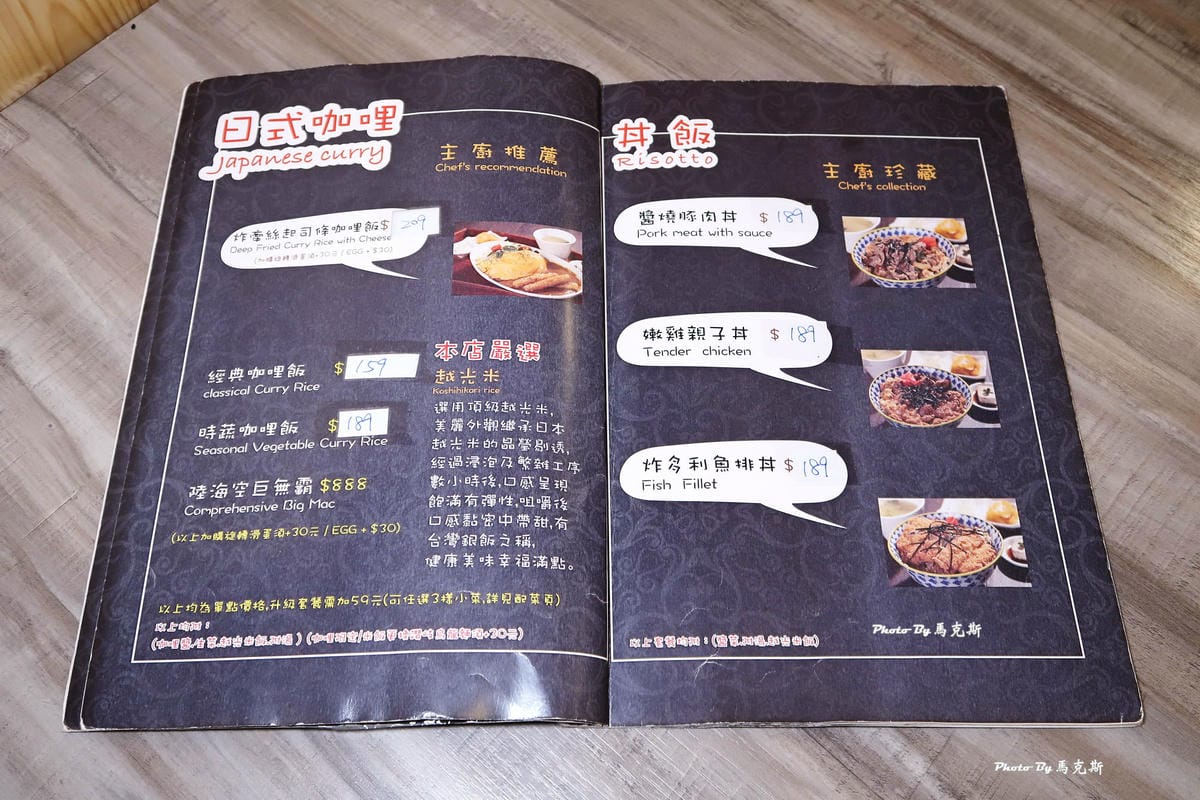 日式咖哩
Japanese curry
主廚推薦
Chef's recommendation
炸牽絲起司條咖哩飯$ 209
Deep Fried Curry Rice with Cheese
(加購旋轉滑蛋須+30元 / EGG + $30)
經典咖哩飯 $ 159
classical Curry Rice
時蔬咖哩飯 $ 189
Seasonal Vegetable Curry Rice
陸海空巨無霸 $888
Comprehensive Big Mac
(以上加購旋轉滑蛋須+30元 / EGG + $30)
本店嚴選
越光米
Koshihikari rice
選用頂級越光米,
美麗外觀繼承日本
越光米的晶瑩剔透,
經過浸泡及繁雜工序
數小時後,口感呈現
飽滿有彈性,咀嚼後
口感黏密中帶甜,有
台灣銀飯之稱,
健康美味幸福滿點。
以上均為單點價格,升級套餐需加59元(可任選3樣小菜,詳見配菜頁)
以上均附：
(咖哩醬.生菜.越光米飯.附湯) (咖哩
丼飯
Risotto
主廚珍藏
Chef's collection
醬燒豚肉丼 $ 189
Pork meat with sauce
嫩雞親子丼 $ 189
Tender chicken
炸多利魚排丼 $ 189
Fish Fillet
以上套餐均附：
Photo By 馬克斯
Photo By 馬克斯